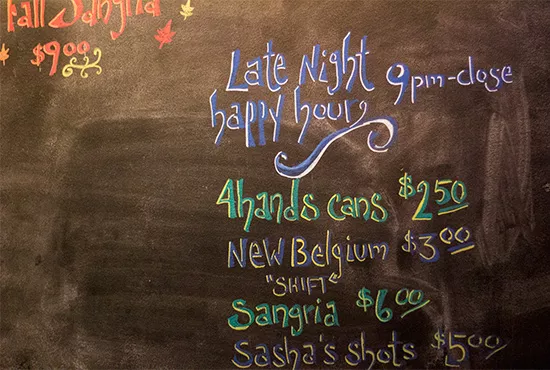 Fall Sangria
$9.00
Late Night
happy hour, 9pm-close
4hands cans $2.50
New Belgium $3.00
"SHIFT"
Sangria $6.00
Sasha's shots $5.00